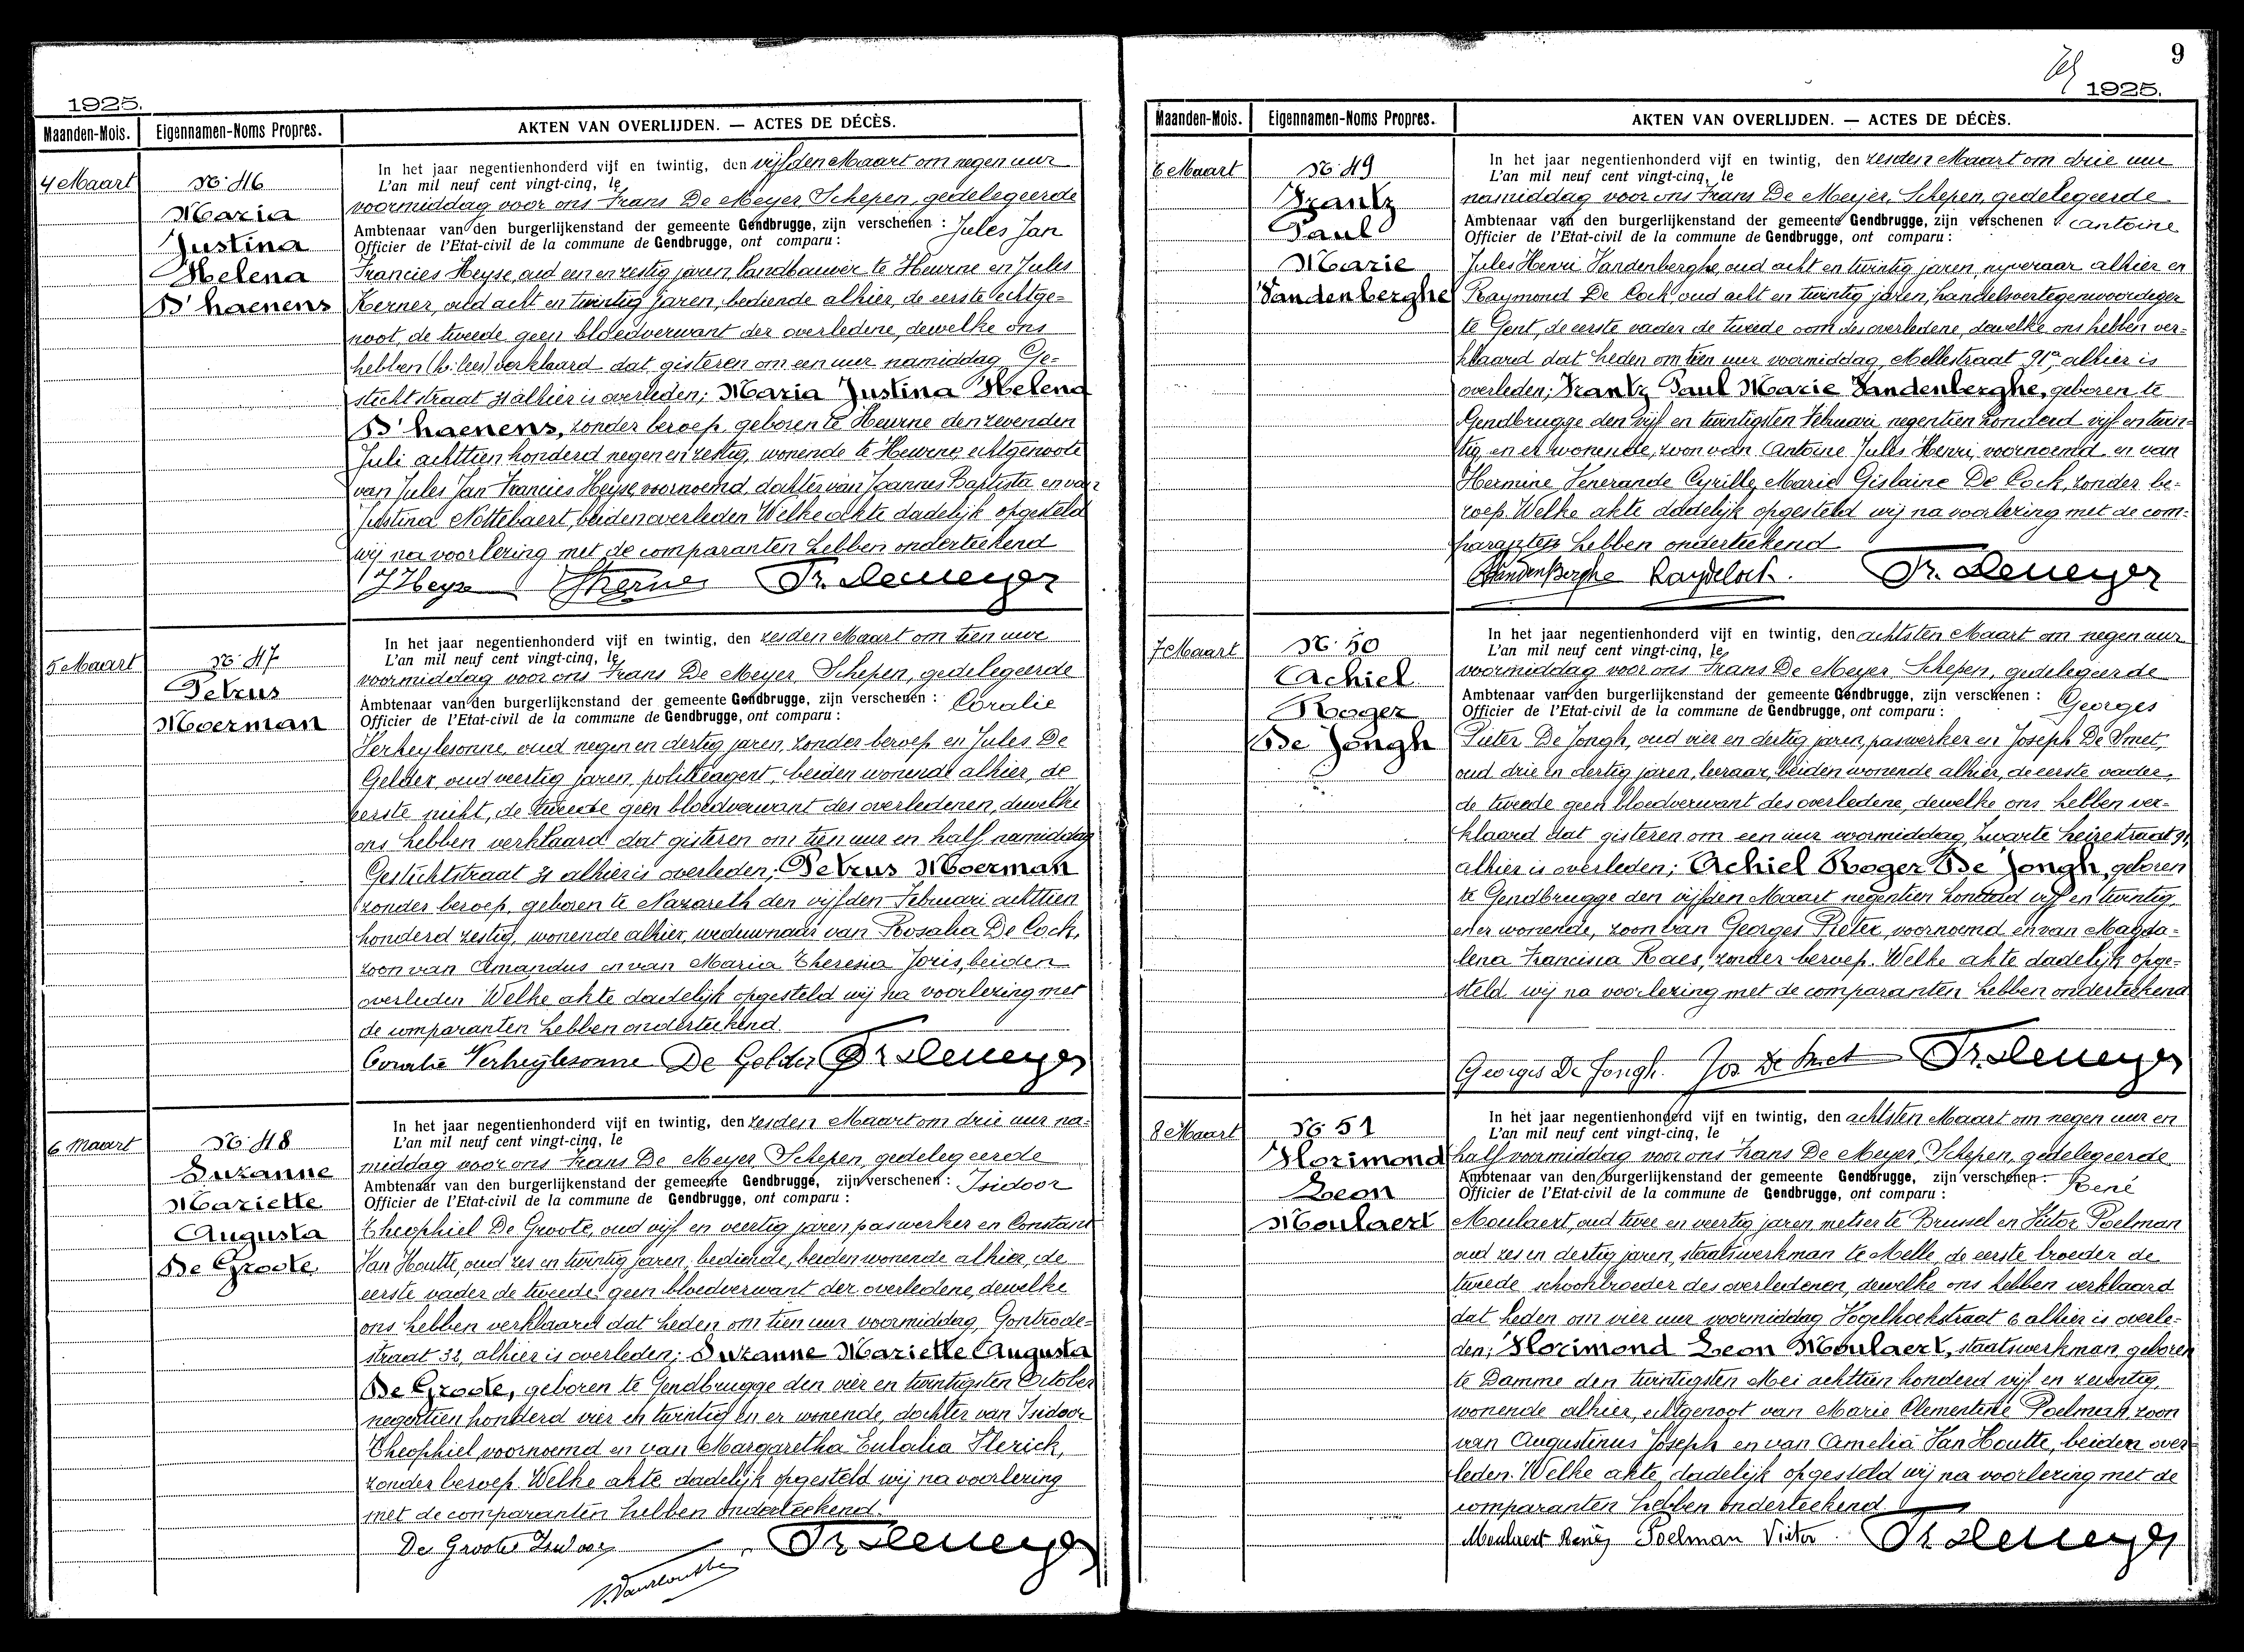 1925.
Maanden-Mois. Eigennamen-Noms Propres. AKTEN VAN OVERLIJDEN. — ACTES DE DÉCÈS.
4 Maart
No. 46
Maria
Justina
Helena
D'haenens
In het jaar negentienhonderd vijf en twintig, den vijfden Maart om negen uur
L'an mil neuf cent vingt-cinq, le
voormiddag voor ons Frans De Meyer Schepen, gedelegeerde
Ambtenaar van den burgerlijkenstand der gemeente Gendbrugge, zijn verschenen : Jules Jan
Officier de l'Etat-civil de la commune de Gendbrugge, ont comparu :
Francies Heyse, oud een en zestig jaren, landbouwer te Heurne en Jules
Kerner, oud acht en twintig jaren, bediende alhier, de eerste echtge-
noot, de tweede geen bloedverwant der overledene, dewelke ons
hebben (h: lees) verklaard dat gisteren om een uur namiddag Ge-
stichtstraat 31 alhier is overleden; Maria Justina Helena
D'haenens, zonder beroep, geboren te Heurne den zevenden
Juli achttien honderd negen en zestig, wonende te Heurne, echtgenoote
van Jules Jan Francies Heyse, voornoemd, dochter van Joannes Baptista en van
Justina Nottebaert, beiden overleden Welke akte dadelijk opgesteld
wij na voorlezing met de comparanten hebben onderteekend
J Heyse Kerner Fr. Demeyer
5 Maart
No. 47
Petrus
Moerman
In het jaar negentienhonderd vijf en twintig, den zesden Maart om tien ure
L'an mil neuf cent vingt-cinq, le
voormiddag voor ons Frans De Meyer Schepen, gedelegeerde
Ambtenaar van den burgerlijkenstand der gemeente Gendbrugge, zijn verschenen : Coralie
Officier de l'Etat-civil de la commune de Gendbrugge, ont comparu :
Verheylesonne, oud negen en dertig jaren, zonder beroep en Jules De
Gelder, oud veertig jaren, politieagent, beiden wonende alhier, de
eerste nicht, de tweede geen bloedverwant des overledenen, dewelke
ons hebben verklaard dat gisteren om tien uur en half namiddag
Gestichtstraat 31 alhier is overleden; Petrus Moerman
zonder beroep, geboren te Nazareth den vijfden Februari achttien
honderd zestig, wonende alhier, weduwnaar van Rosalia De Cock,
zoon van Amandus en van Maria Theresia Joris, beiden
overleden Welke akte dadelijk opgesteld wij na voorlezing met
de comparanten hebben onderteekend.
Coralie Verheylesonne De Gelder Fr Demeyer
6 Maart
No. 48
Suzanne
Mariette
Augusta
De Groote
In het jaar negentienhonderd vijf en twintig, den zesden Maart om drie uur na-
L'an mil neuf cent vingt-cinq, le
middag voor ons Frans De Meyer Schepen, gedelegeerde
Ambtenaar van den burgerlijkenstand der gemeente Gendbrugge, zijn verschenen : Isidoor
Officier de l'Etat-civil de la commune de Gendbrugge, ont comparu :
Theophiel De Groote, oud vijf en veertig jaren paswerker en Constant
Van Houtte, oud zes en twintig jaren, bediende, beiden wonende alhier, de
eerste vader de tweede geen bloedverwant der overledene, dewelke
ons hebben verklaard dat heden om tien uur voormiddag, Gontrode-
straat 32, alhier is overleden; Suzanne Mariette Augusta
De Groote, geboren te Gendbrugge den vier en twintigsten October
negentien honderd vier en twintig en er wonende, dochter van Isidoor
Theophiel, voornoemd en van Margaretha Eulalia Sterick,
zonder beroep. Welke akte dadelijk opgesteld wij na voorlezing
met de comparanten hebben onderteekend.
De Groote Isidoor Fr Demeyer
9
1925.
Maanden-Mois. Eigennamen-Noms Propres. AKTEN VAN OVERLIJDEN. — ACTES DE DÉCÈS.
6 Maart
No. 49
Frantz
Paul
Marie
Vandenberghe
In het jaar negentienhonderd vijf en twintig, den zesden Maart om drie uur
L'an mil neuf cent vingt-cinq, le
namiddag voor ons Frans De Meyer, Schepen, gedelegeerde
Ambtenaar van den burgerlijkenstand der gemeente Gendbrugge, zijn verschenen : Antoine
Officier de l'Etat-civil de la commune de Gendbrugge, ont comparu :
Jules Henri Vandenberghe, oud acht en twintig jaren, nijveraar alhier en
Raymond De Cock oud acht en twintig jaren, handelsvertegenwoordiger
te Gent, de eerste vader de tweede oom des overledene, dewelke ons hebben ver-
klaard dat heden om tien uur voormiddag, Mellestraat 91a, alhier is
overleden; Frantz Paul Marie Vandenberghe, geboren te
Gendbrugge den vijf en twintigsten Februari, negentien honderd vijf en twin-
tig, en er wonende, zoon van Antoine Jules Henri, voornoemd en van
Hermine Venerande Cyrille Marie Gislaine De Cock, zonder be-
roep. Welke akte dadelijk opgesteld wij na voorlezing met de com-
paranten hebben onderteekend
VandenBerghe RayDecock. Fr. Demeyer
7 Maart
No. 50
Achiel
Roger
De Jongh
In het jaar negentienhonderd vijf en twintig, den achtsten Maart om negen uur
L'an mil neuf cent vingt-cinq, le
voormiddag voor ons Frans De Meyer Schepen, gedelegeerde
Ambtenaar van den burgerlijkenstand der gemeente Gendbrugge, zijn verschenen : Georges
Officier de l'Etat-civil de la commune de Gendbrugge, ont comparu :
Pieter De Jongh, oud vier en dertig jaren, paswerker en Joseph De Smet,
oud drie en dertig jaren, leeraar, beiden wonende alhier, de eerste vader,
de tweede geen bloedverwant des overledene, dewelke ons hebben ver-
klaard dat gisteren om een uur voormiddag, Zwarte heirestraat 91,
alhier is overleden; Achiel Roger De Jongh, geboren
te Gendbrugge den vijfden Maart negentien honderd vijf en twintig,
en er wonende, zoon van Georges Pieter, voornoemd en van Magda-
lena Francisca Raes, zonder beroep. Welke akte dadelijk opge-
steld wij na voorlezing met de comparanten hebben onderteekend
Georges De Jongh. Jos De Smet Fr. Demeyer
8 Maart
No. 51
Florimond
Leon
Moulaert
In het jaar negentienhonderd vijf en twintig, den achtsten Maart om negen uur en
L'an mil neuf cent vingt-cinq, le
half voormiddag voor ons Frans De Meyer, Schepen, gedelegeerde
Ambtenaar van den burgerlijkenstand der gemeente Gendbrugge, zijn verschenen : René
Officier de l'Etat-civil de la commune de Gendbrugge, ont comparu :
Moulaert, oud twee en veertig jaren metser te Brussel en Victor Poelman
oud zes en dertig jaren, staatswerkman te Melle, de eerste broeder de
tweede schoonbroeder des overledenen, dewelke ons hebben verklaard
dat heden om vier uur voormiddag Vogelhoekstraat 6 alhier is overle-
den; Florimond Leon Moulaert, staatswerkman, geboren
te Damme den twintigsten Mei achttien honderd vijf en zeventig,
wonende alhier, echtgenoot van Marie Clementine Poelman, zoon
van Augustinus Joseph en van Amelia Van Houtte, beiden over-
leden. Welke akte dadelijk opgesteld wij na voorlezing met de
comparanten hebben onderteekend.
Moulaert René Poelman Victor Fr Demeyer